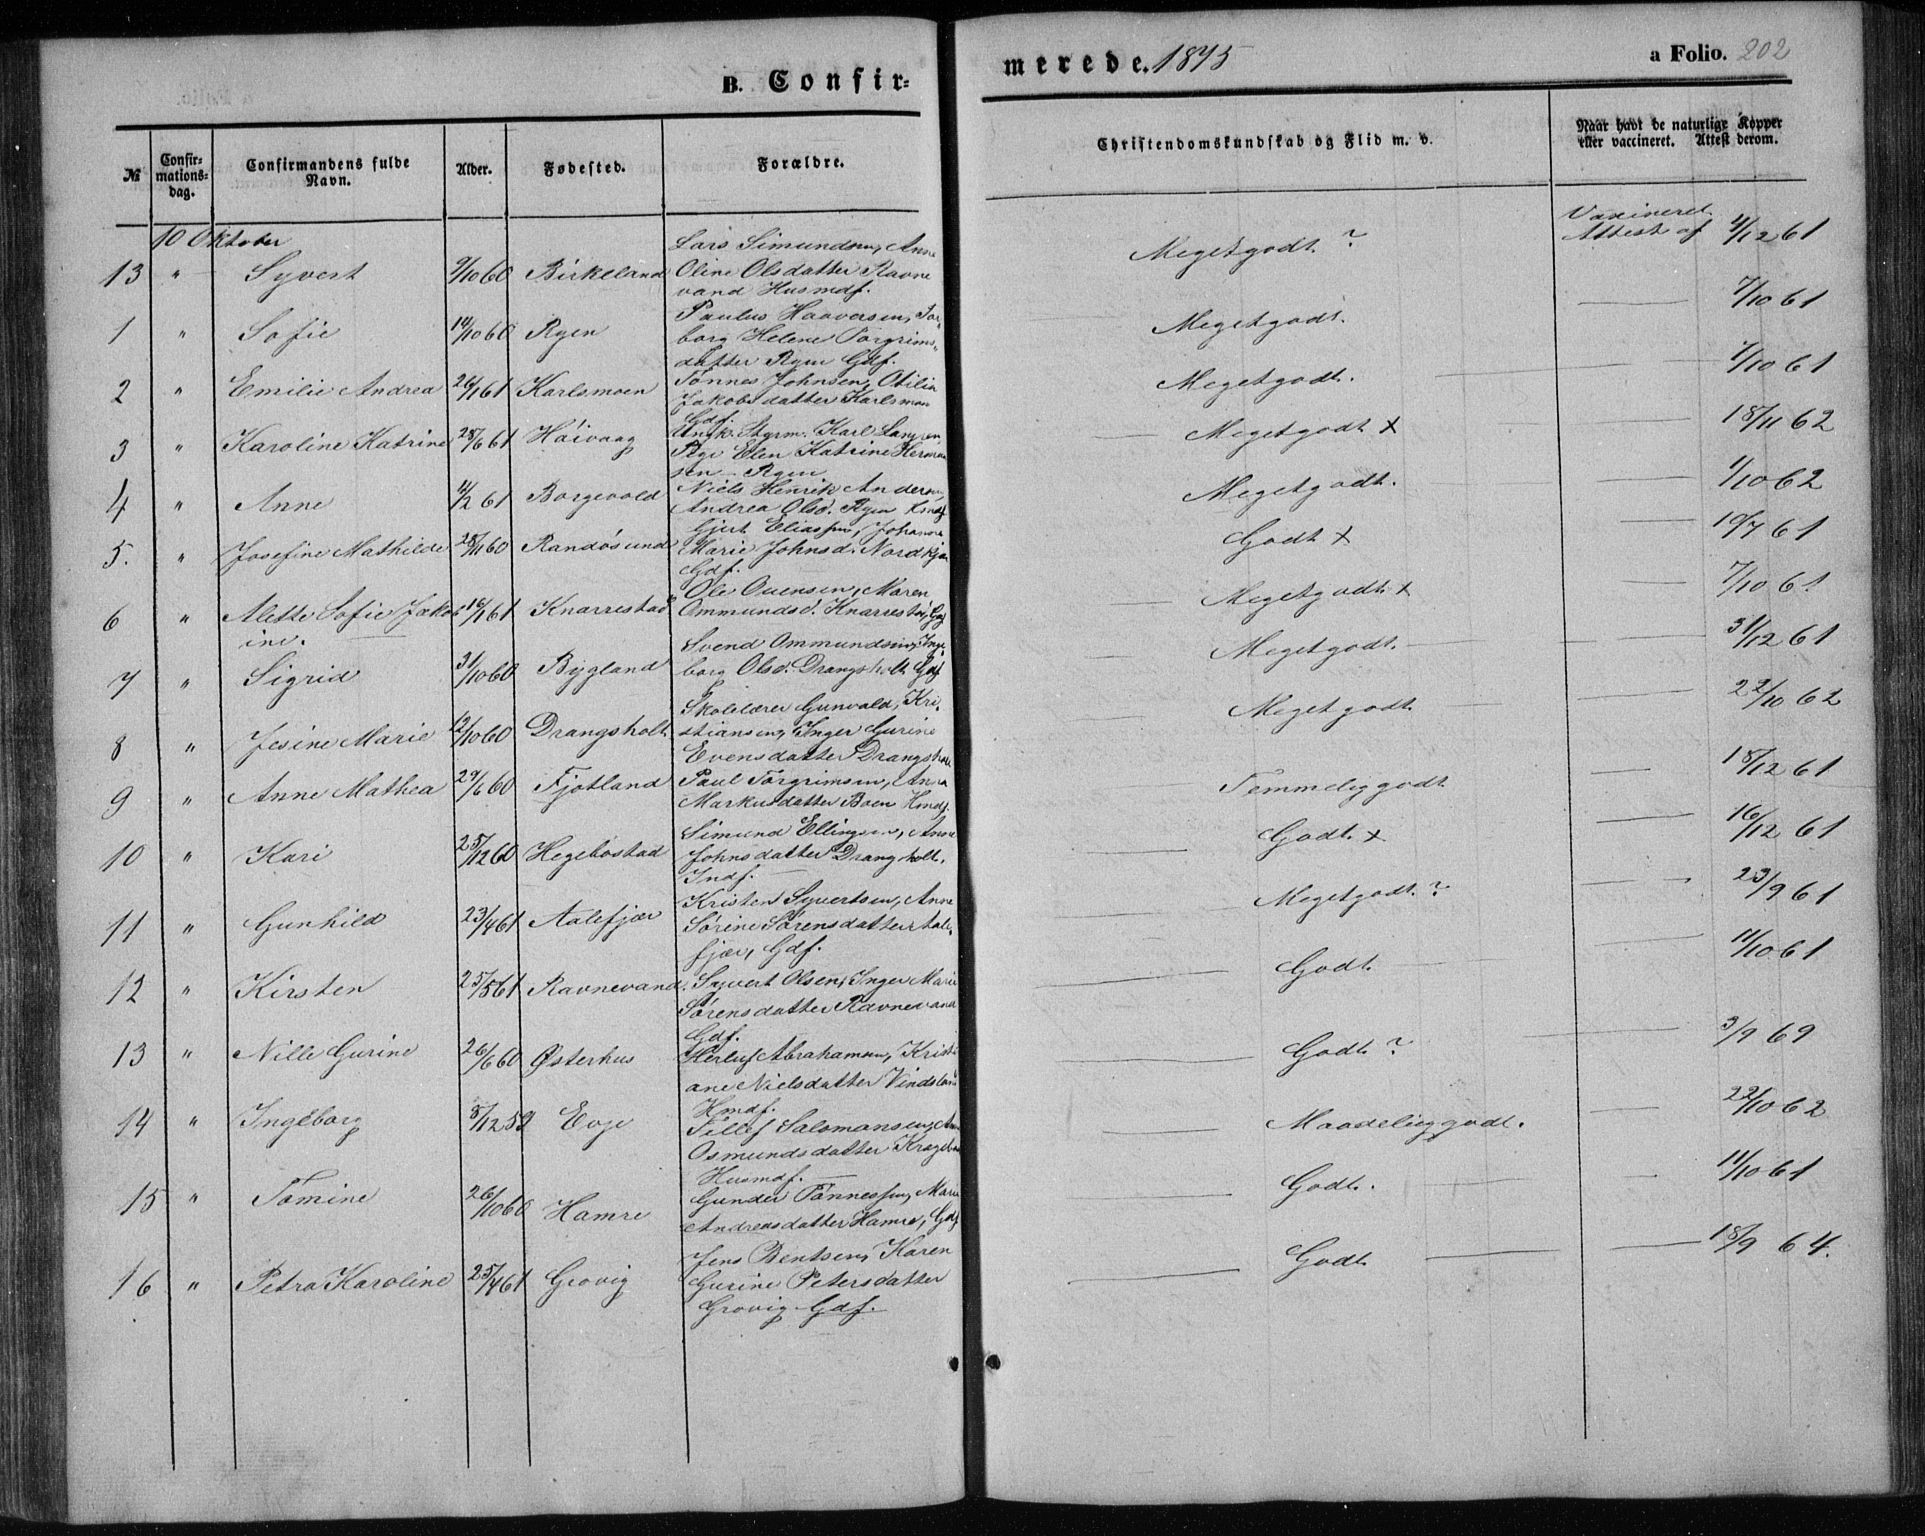 B. Confir-
merede. 1875
a Folio. 202
№
Confir-
mations-
dag.
Confirmandens fulde
Navn.
Alder.
Fødested.
Forældre.
Christendomskundskab og Flid m. v.
Naar havt de naturlige Kopper
eller vaccineret. Attest derom.
10 Oktober
13 " Syvert 9/10 60 Birkeland Lars Simundsen, Anne
Oline Olsdatter Ravne
vand Husmdf.
Megetgodt ? Vaxineret
Attest af 4/12 61
1 " Sofie 14/10 60 Ryen Paulus Haaversen, Tor-
borg Helene Torgrims-
datter Ryen Gdf.
Megetgodt. 7/10 61
2 " Emilie Andrea 26/1 61 Karlsmoen Tønnes Johnsen, Otilia
Jakobsdatter Karlsmoen
Gdf.
Megetgodt. 7/10 61
3 " Karoline Katrine 28/6 61 Höivaag Styrm. Karl
Elen Katrine Herman
sen - Ryen
Megetgodt x 18/11 62
4 " Anne 4/2 61 Borgevold Niels Henrik Andersen
Andrea Olsd. Ryen
Megetgodt. 1/10 62
5. " Josefine Mathilde 28/11 60 Randösund Gjert Eliassen, Johanne
Marie Johnsd. Nordkjær
Gdf.
Godt x 19/7 61
6 " Alette Sofie Jakob
ine. 16/1 61 Knarrestad Ole Ouensen, Maren
Ommundsd. Knarrestad, Gdf
Megetgodt x 7/10 61
7 " Sigrid 31/10 60 Bygland Svend Ommundsen, Inge
borg Olsd. Drangsholt Gdf
Megetgodt. 31/12 61
8 " Jesine Marie 12/10 60 Drangsholt Skolelærer Gunvald, Kri-
stiansen, Inger Gurine
Evensdatter Drangsholt
Megetgodt 22/10 62
9 " Anne Mathea 29/6 60 Fjotland Paul Torgrimsen, Anna
Markusdatter Boen Hmdf.
Temmeliggodt 18/12 61
10 " Kari 25/12 60 Hegebostad Simund Ellingsen, Anne
Johnsdatter Drangsholt.
Indf.
Godt x 16/12 61
11 " Gunhild 23/4 61 Aalefjær Kristen Syvertsen, Anne
Sørine Sørensdatter Aale-
fjær, Gdf.
Megetgodt ? 23/9 61
12 " Kirsten 25/5 61 Ravnevand. Syvert Olsen, Inger Marie
Sørensdatter Ravnevand
Gdf.
Godt. 11/10 61
13 " Nille Gurine 26/6 60 Østerhus Herluf Abrahamsen, Kristi
ane Nielsdatter Vindsland
Hmdf.
Godt ? 3/9 69
14 " Ingeborg 3/12 59 Evje Tellef Salomonsen,
Osmundsdatter
Husmdf.
Maadeliggodt. 22/10 62
15 " Tomine 26/10 60 Hamre Gunder Tønnessen, Marie
Andreasdatter Hamre, Gdf
Godt. 11/10 61
16 " Petra Karoline 25/4 61 Grovig Jens Bentsen, Karen
Gurine Petersdatter
Grovig Gdf.
Godt 18/9 64.